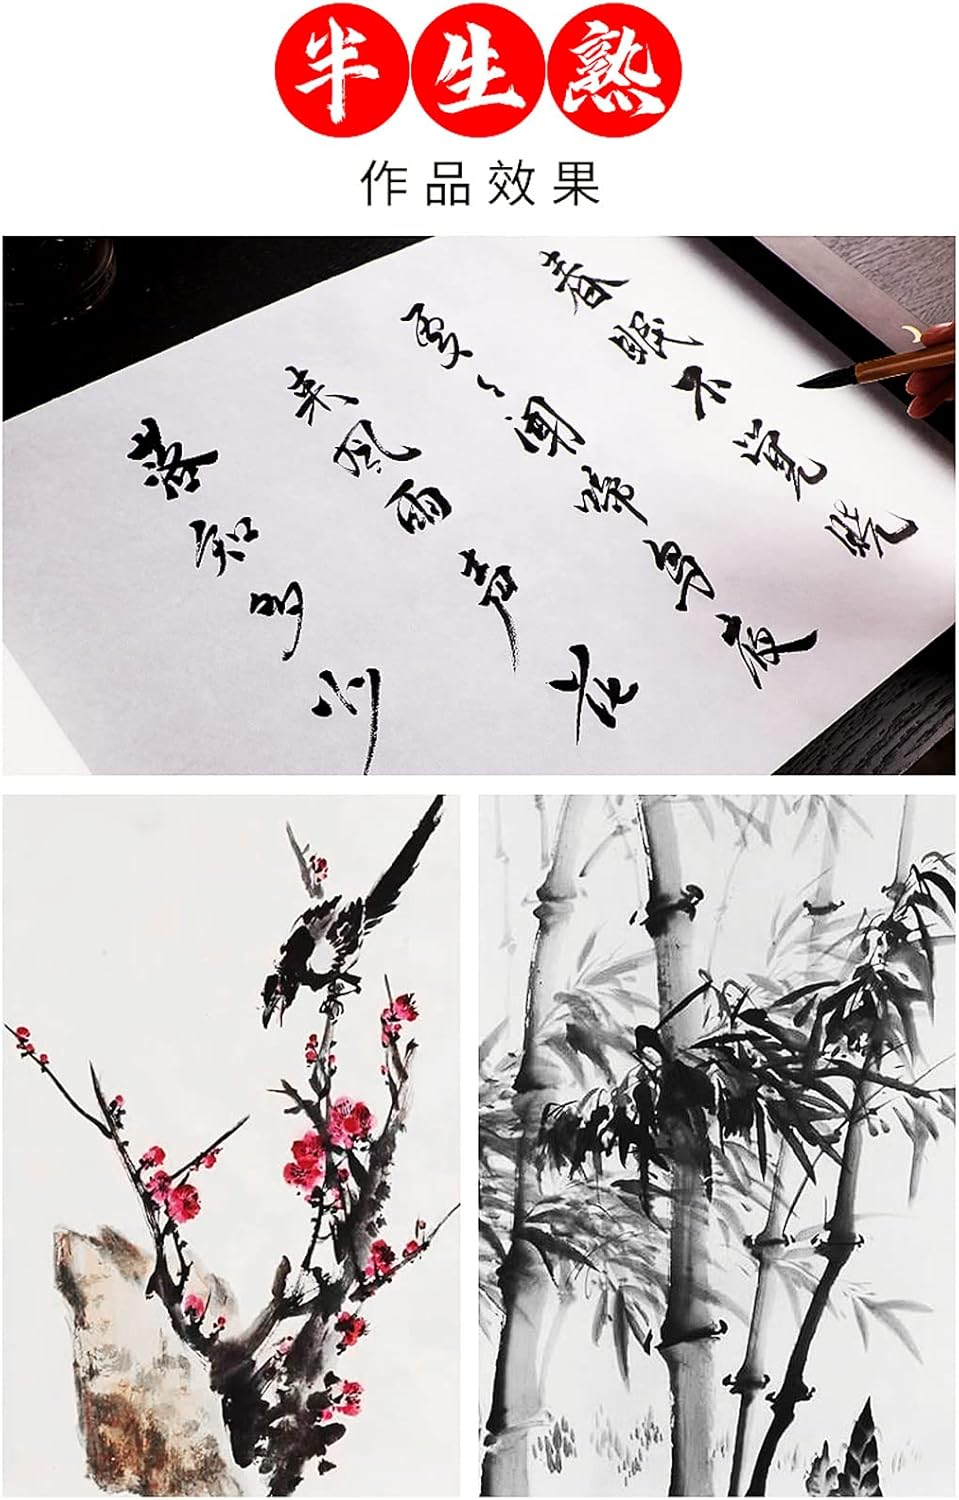 半生熟
作品效果
春眠不觉晓
處々闻啼鸟夜
来风雨声花
落知多少